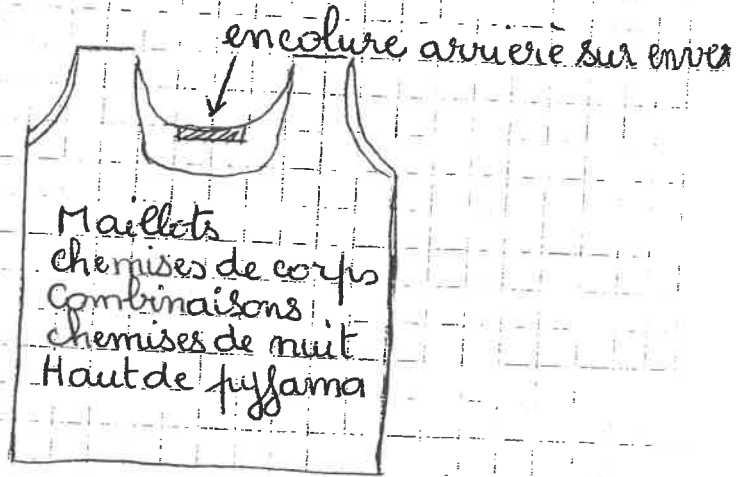 encolure arrière sur enver
Maillots
chemises de corps
Combinaisons
chemises de nuit
Haut de pyjama